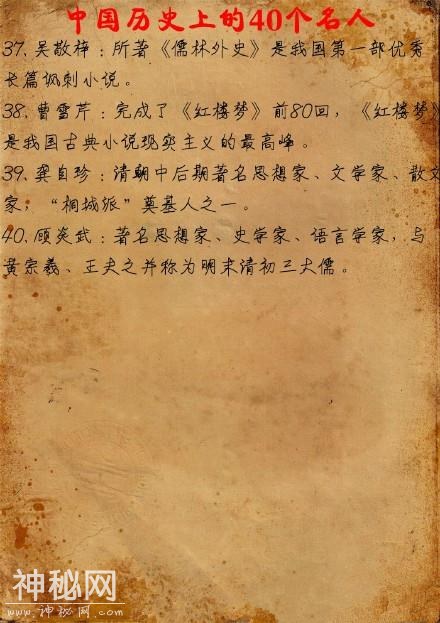 中国历史上的40个名人
37、吴敬梓：所著《儒林外史》是我国第一部优秀
长篇讽刺小说。
38、曹雪芹：完成了《红楼梦》前80回，《红楼梦》
是我国古典小说现实主义的最高峰。
39、龚自珍：清朝中后期著名思想家、文学家、散文
家，“桐城派”奠基人之一。
40、顾炎武：著名思想家、史学家、语言学家，与
黄宗羲、王夫之并称为明末清初三大儒。
神秘网
www.神秘网.com